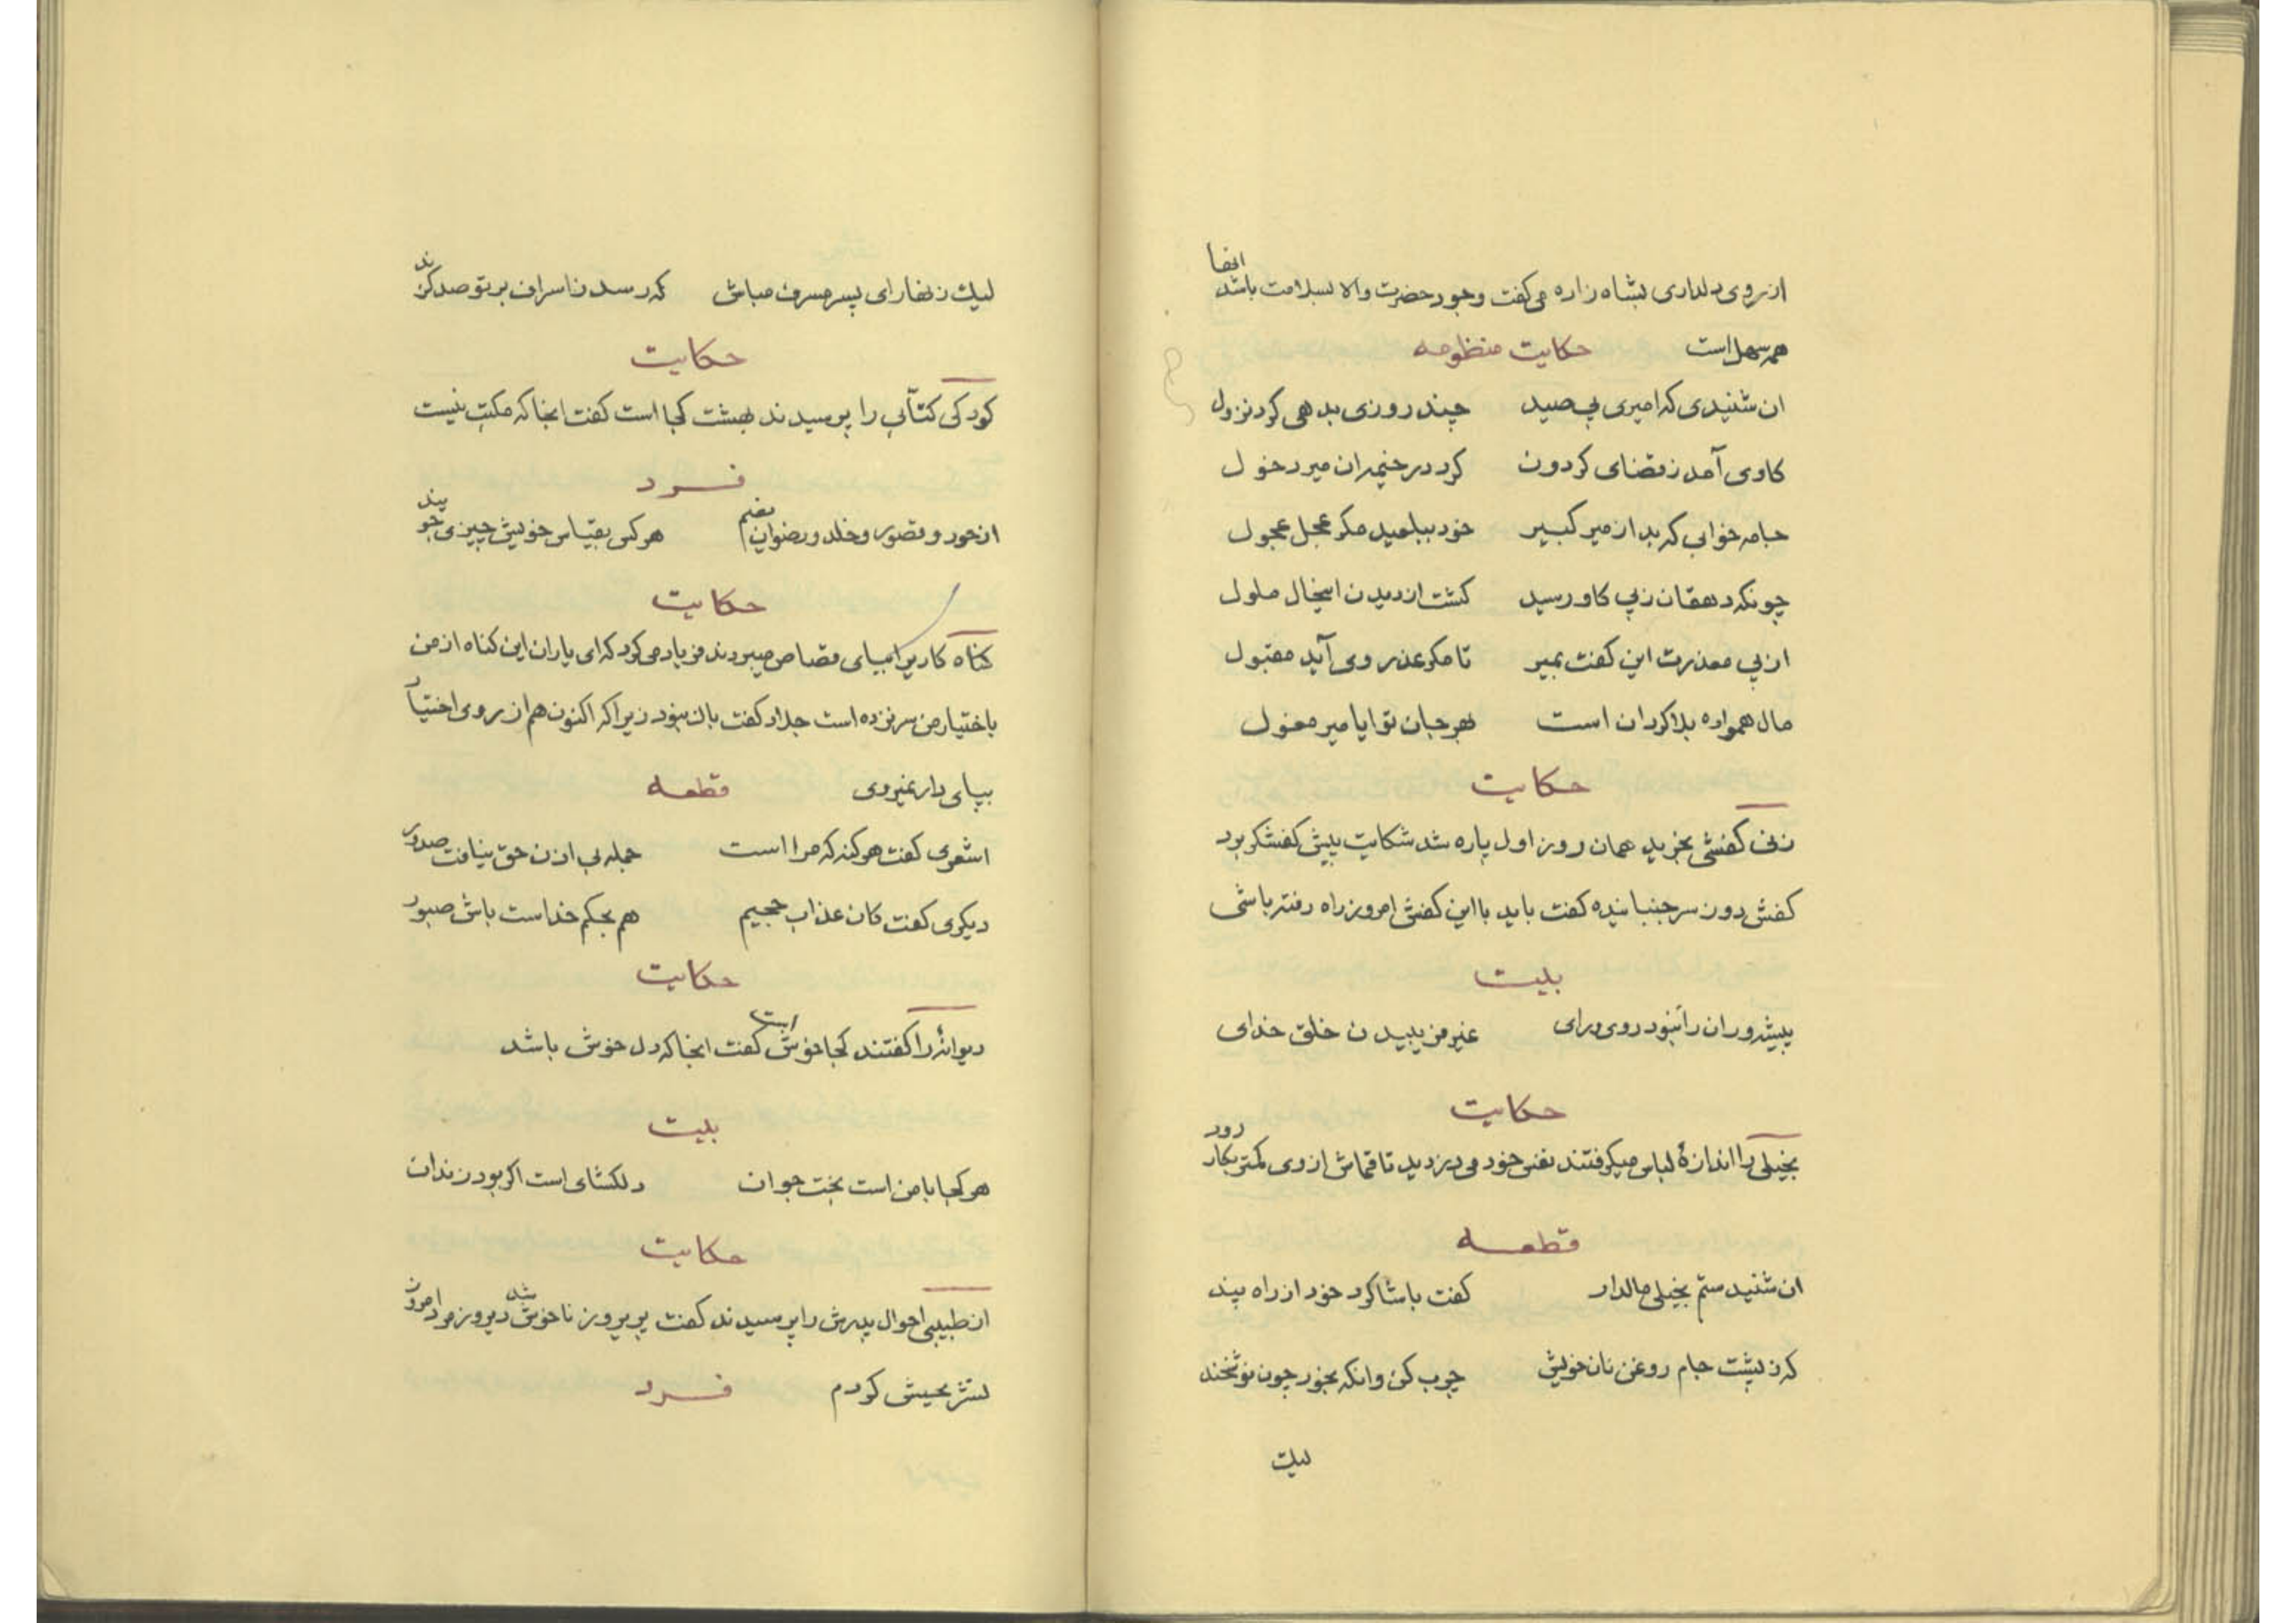 از روی دلداری بشاه زاده می‌گفت وجود حضرت والا بسلامت باشد اینها
همه سهل است حکایت منظومه
ان شنیدی که امیری پی صید چند روزی بدهی کرد نزول
کاوی آمد ز قضای کردون کرد در خیمه ان میر دخول
جامه خوابی که بد از میر کبیر خود ببلعید مکر عجل عجول
چونکه دهقان ز پی کاو رسید کشت از دیدن اینحال ملول
از پی معذرت این کفت بمیر تا مکر عذر وی آید مقبول
مال همواره بلا کردان است بهر جان تو ایا میر
حکایت
زنی کفشی بخرید همان روز اول پاره شد شکایت پیش کفشکر برد
کفش دوز سر جنبانیده کفت باید با این کفش امروز راه رفته باشی
بیت
پیشه وران را نبود روی و رای غیر فریبیدن خلق خدای
حکایت
بخیلی را اندازهٔ لباس میکرفتند نفس خود می‌دزدید تا قماش از وی کمتر بکار رود
قطعه
ان شنیدستم بخیلی مالدار کفت با شاکرد خود از راه پند
که ز پشت جام روغن نان خویش چرب کن وانکه بخور چون نوشخند
لیک
لیک زنهار ای پسر مسرف مباش که رسد ز اسراف بر تو صد کزند
حکایت
کودکی کتّابی را پرسیدند بهشت کجا است کفت انجا که مکتب نیست
فرد
از حور و قصور و خلد و رضوان نعیم هر کس بقیاس خویش چیزی جویند
حکایت
کناه کاریرا بپای قصاص میبردند فریاد می‌کرد که ای یاران این کناه از من
باختیار من سر نزده است جلاد کفت باک نبود زیرا که اکنون هم از روی اختیار
بپای دار نمیروی قطعه
اشعری کفت هر کنه که مرا است جمله بی اذن حق نیافت صدور
دیکری کفت کان عذاب جحیم هم بحکم خداست باش صبور
حکایت
دیوانهٔ را کفتند کجا خوش است کفت انجا که دل خوش باشد
بیت
هر کجا با من است بخت جوان دلکشای است اکر بود زندان
حکایت
از طبیبی احوال پدرش را پرسیدند کفت پریروز ناخوش شد دیروز مرد امروز
تشریحش کردم فرد